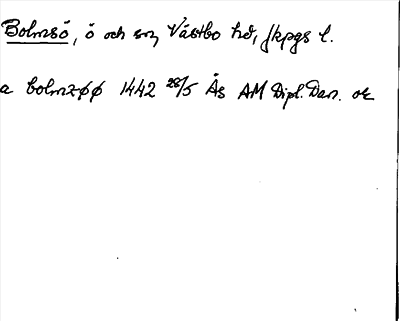 Bolmsö, ö och sn, Västbo hd, Jkpgs l.
a bolmzøø 1442 28/5 Ås AM Dipl. Dan. or